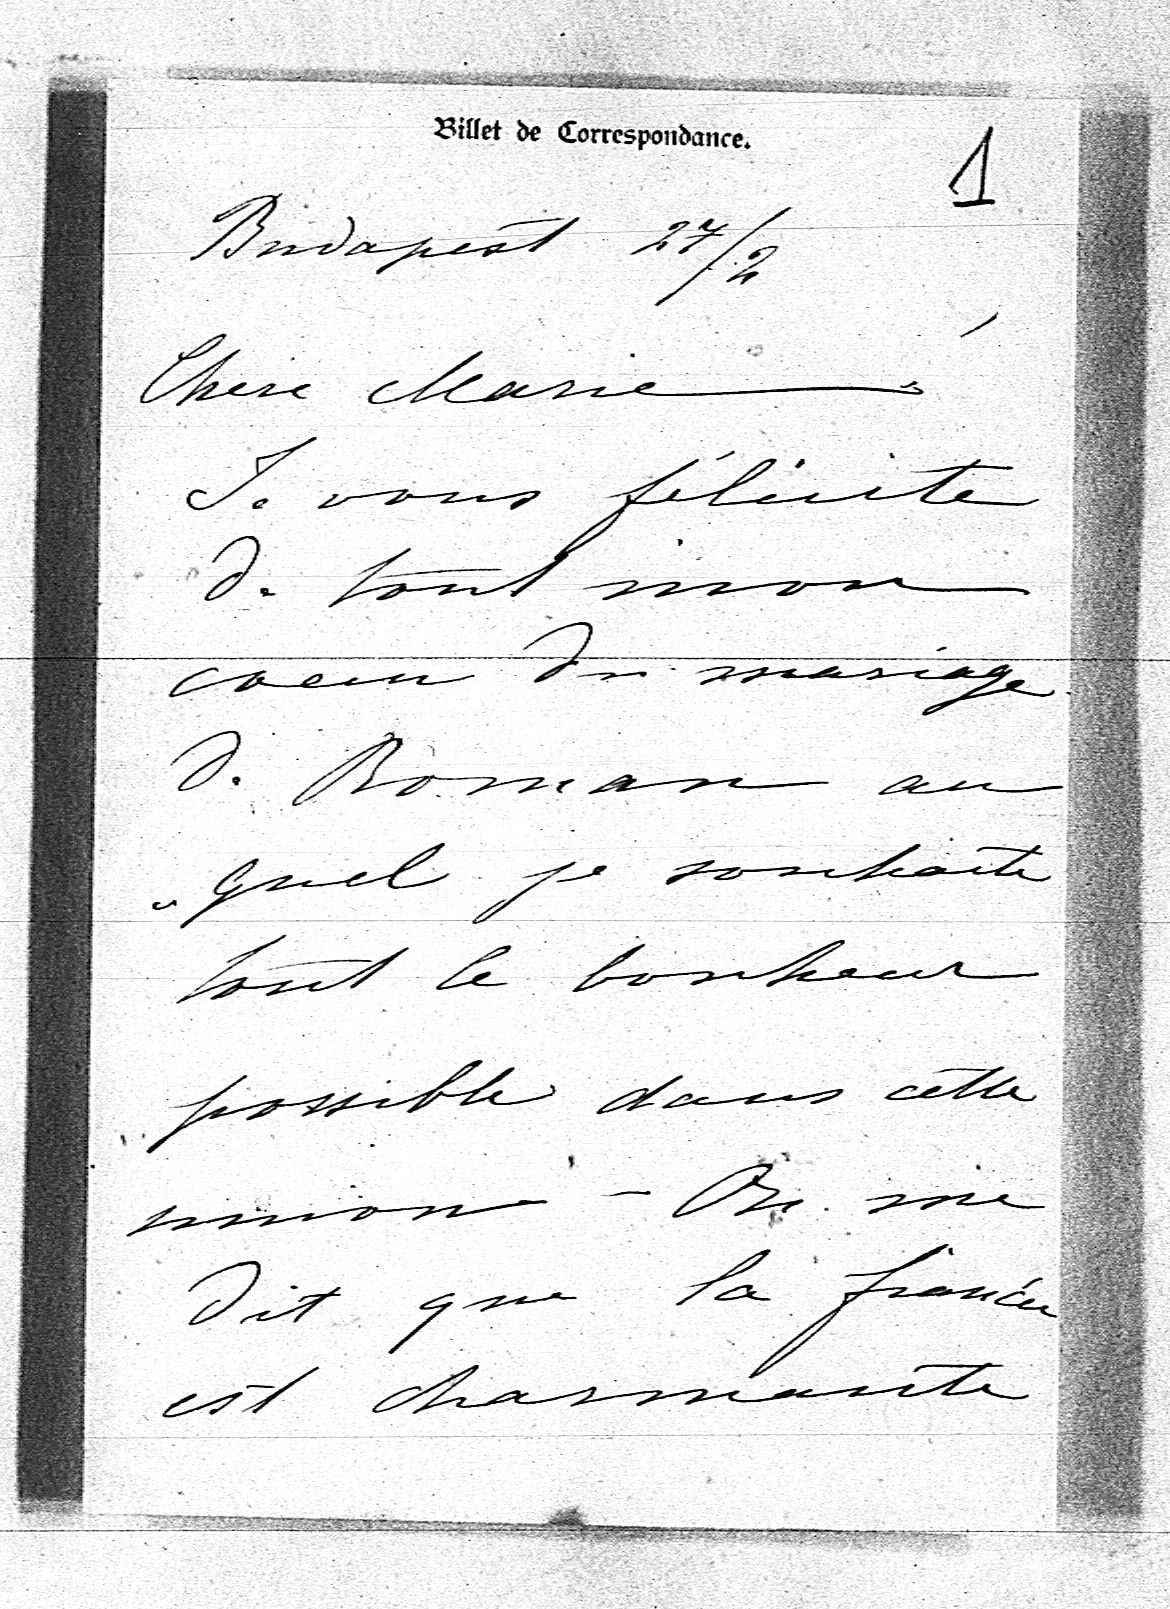 Billet de Correspondance.
1
Budapest 27/2
Chère Marie
Je vous félicite
de tout mon
coeur du mariage
de Roman au
quel je souhaite
tout le bonheur
possible dans cette
union - On me
dit que la fiancée
est charmante